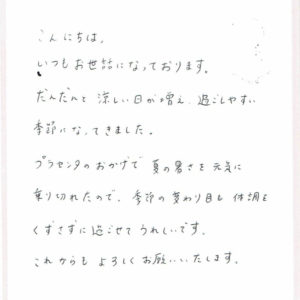 こんにちは。
いつもお世話になっております。
だんだんと涼しい日が増え、過ごしやすい
季節になってきました。
プラセンタのおかげで夏の暑さを元気に
乗り切れたので、季節の変わり目も体調を
くずさずに過ごせてうれしいです。
これからもよろしくお願いいたします。